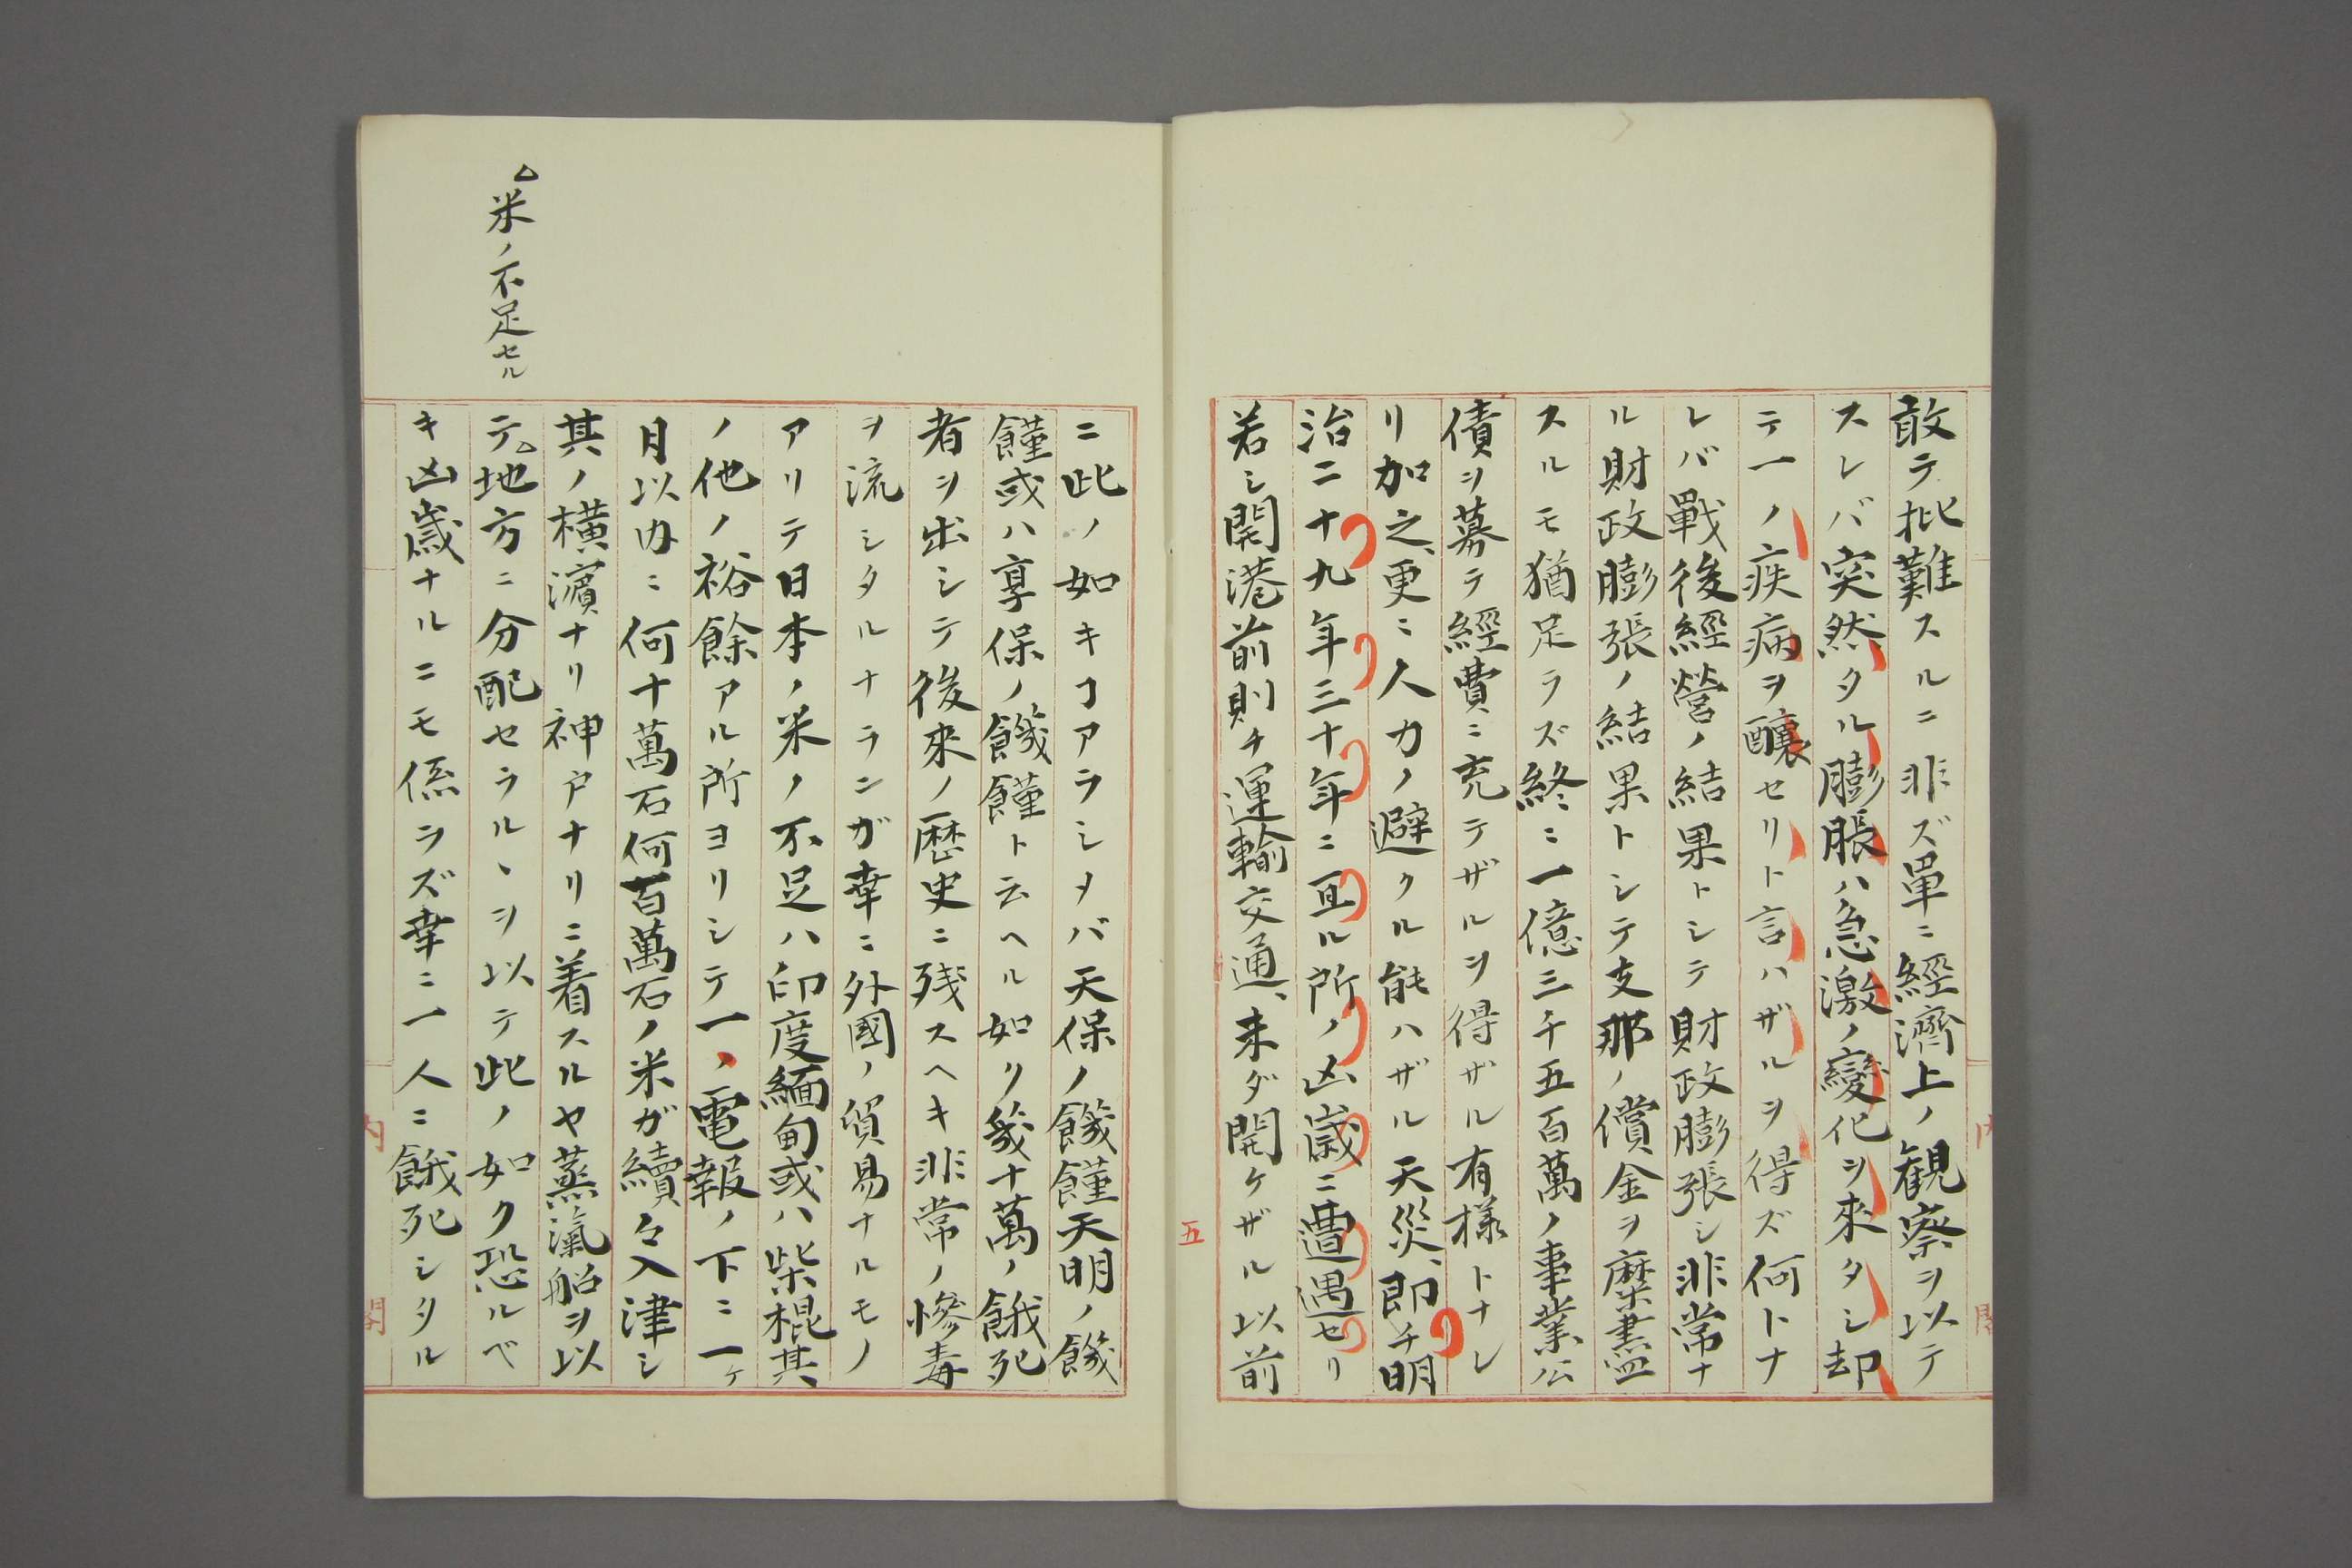 敢テ批難スルニ非ズ單ニ經濟上ノ観察ヲ以テ
スレバ突然タル膨脹ハ急激ノ變化ヲ來タシ却
テ一ノ疾病ヲ釀セリト言ハザルヲ得ズ何トナ
レバ戰後經營ノ結果トシテ財政膨張シ非常ナ
ル財政膨張ノ結果トシテ支那ノ償金ヲ糜盡
スルモ猶足ラズ終ニ一億三千五百萬ノ事業公
債ヲ募テ經費ニ充テザルヲ得ザル有様トナレ
リ加之、更ニ人力ノ避クル能ハザル天災、即チ明
治二十九年三十年ニ亘ル所ノ凶歳ニ遭遇セリ
若シ開港前則チ運輸交通、未ダ開ケザル以前
五
ニ此ノ如キヿアラシメバ天保ノ饑饉天明ノ饑
饉或ハ享保ノ饑饉ト云ヘル如ク幾十萬ノ餓死
者ヲ出シテ後來ノ歴史ニ残スヘキ非常ノ慘毒
ヲ流シタルナランガ幸ニ外國ノ貿易ナルモノ
アリテ日本ノ米ノ不足ハ印度緬甸或ハ柴棍其
ノ他ノ裕餘アル所ヨリシテ一ノ電報ノ下ニ一ケ
月以内ニ何十萬石何百萬石ノ米ガ續々入津シ
其ノ横濱ナリ神戸ナリニ着スルヤ蒸滊船ヲ以
△米ノ不足セル
テ△地方ニ分配セラルヽヲ以テ此ノ如ク恐ルベ
キ凶歳ナルニモ係ラズ幸ニ一人ニ餓死シタル
内閣